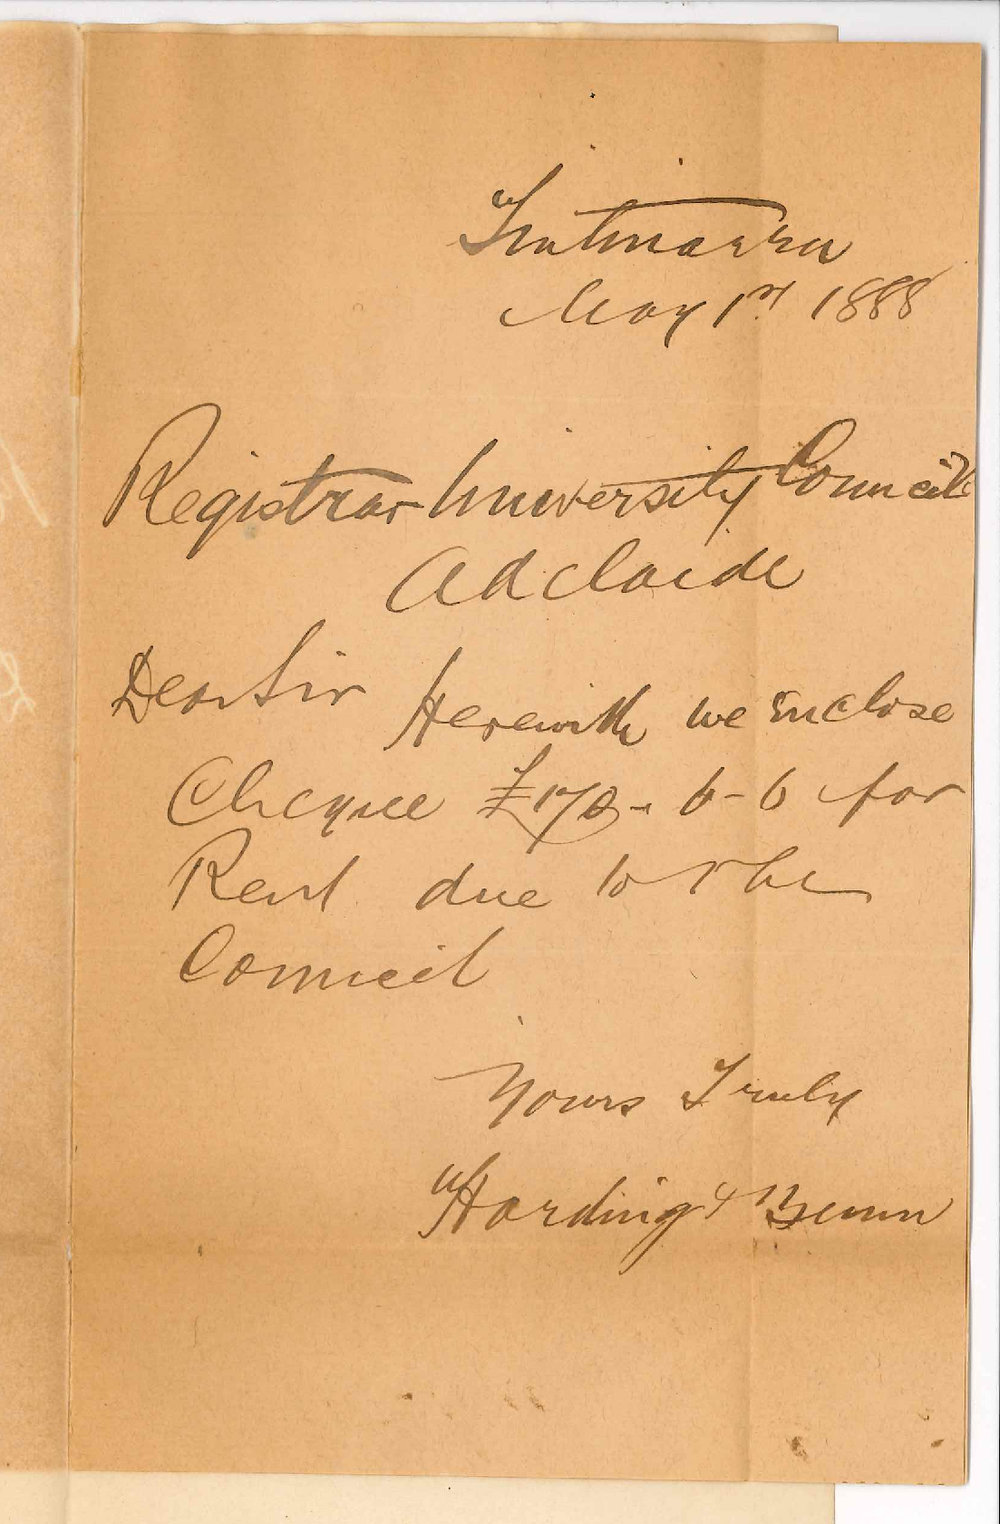 May 1st 1888
Registrar University Council
Adelaide
Dear Sir Herewith we Enclose
Cheque £170-6-6 for
Rent due to the
Council
Yours Truly
Harding &